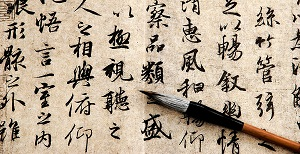 絲竹管弦之
足以暢叙幽情
清惠風和暢仰
察品類盛
以極視聽之
人之相與俯仰
悟言一室之內
浪形骸之外雖